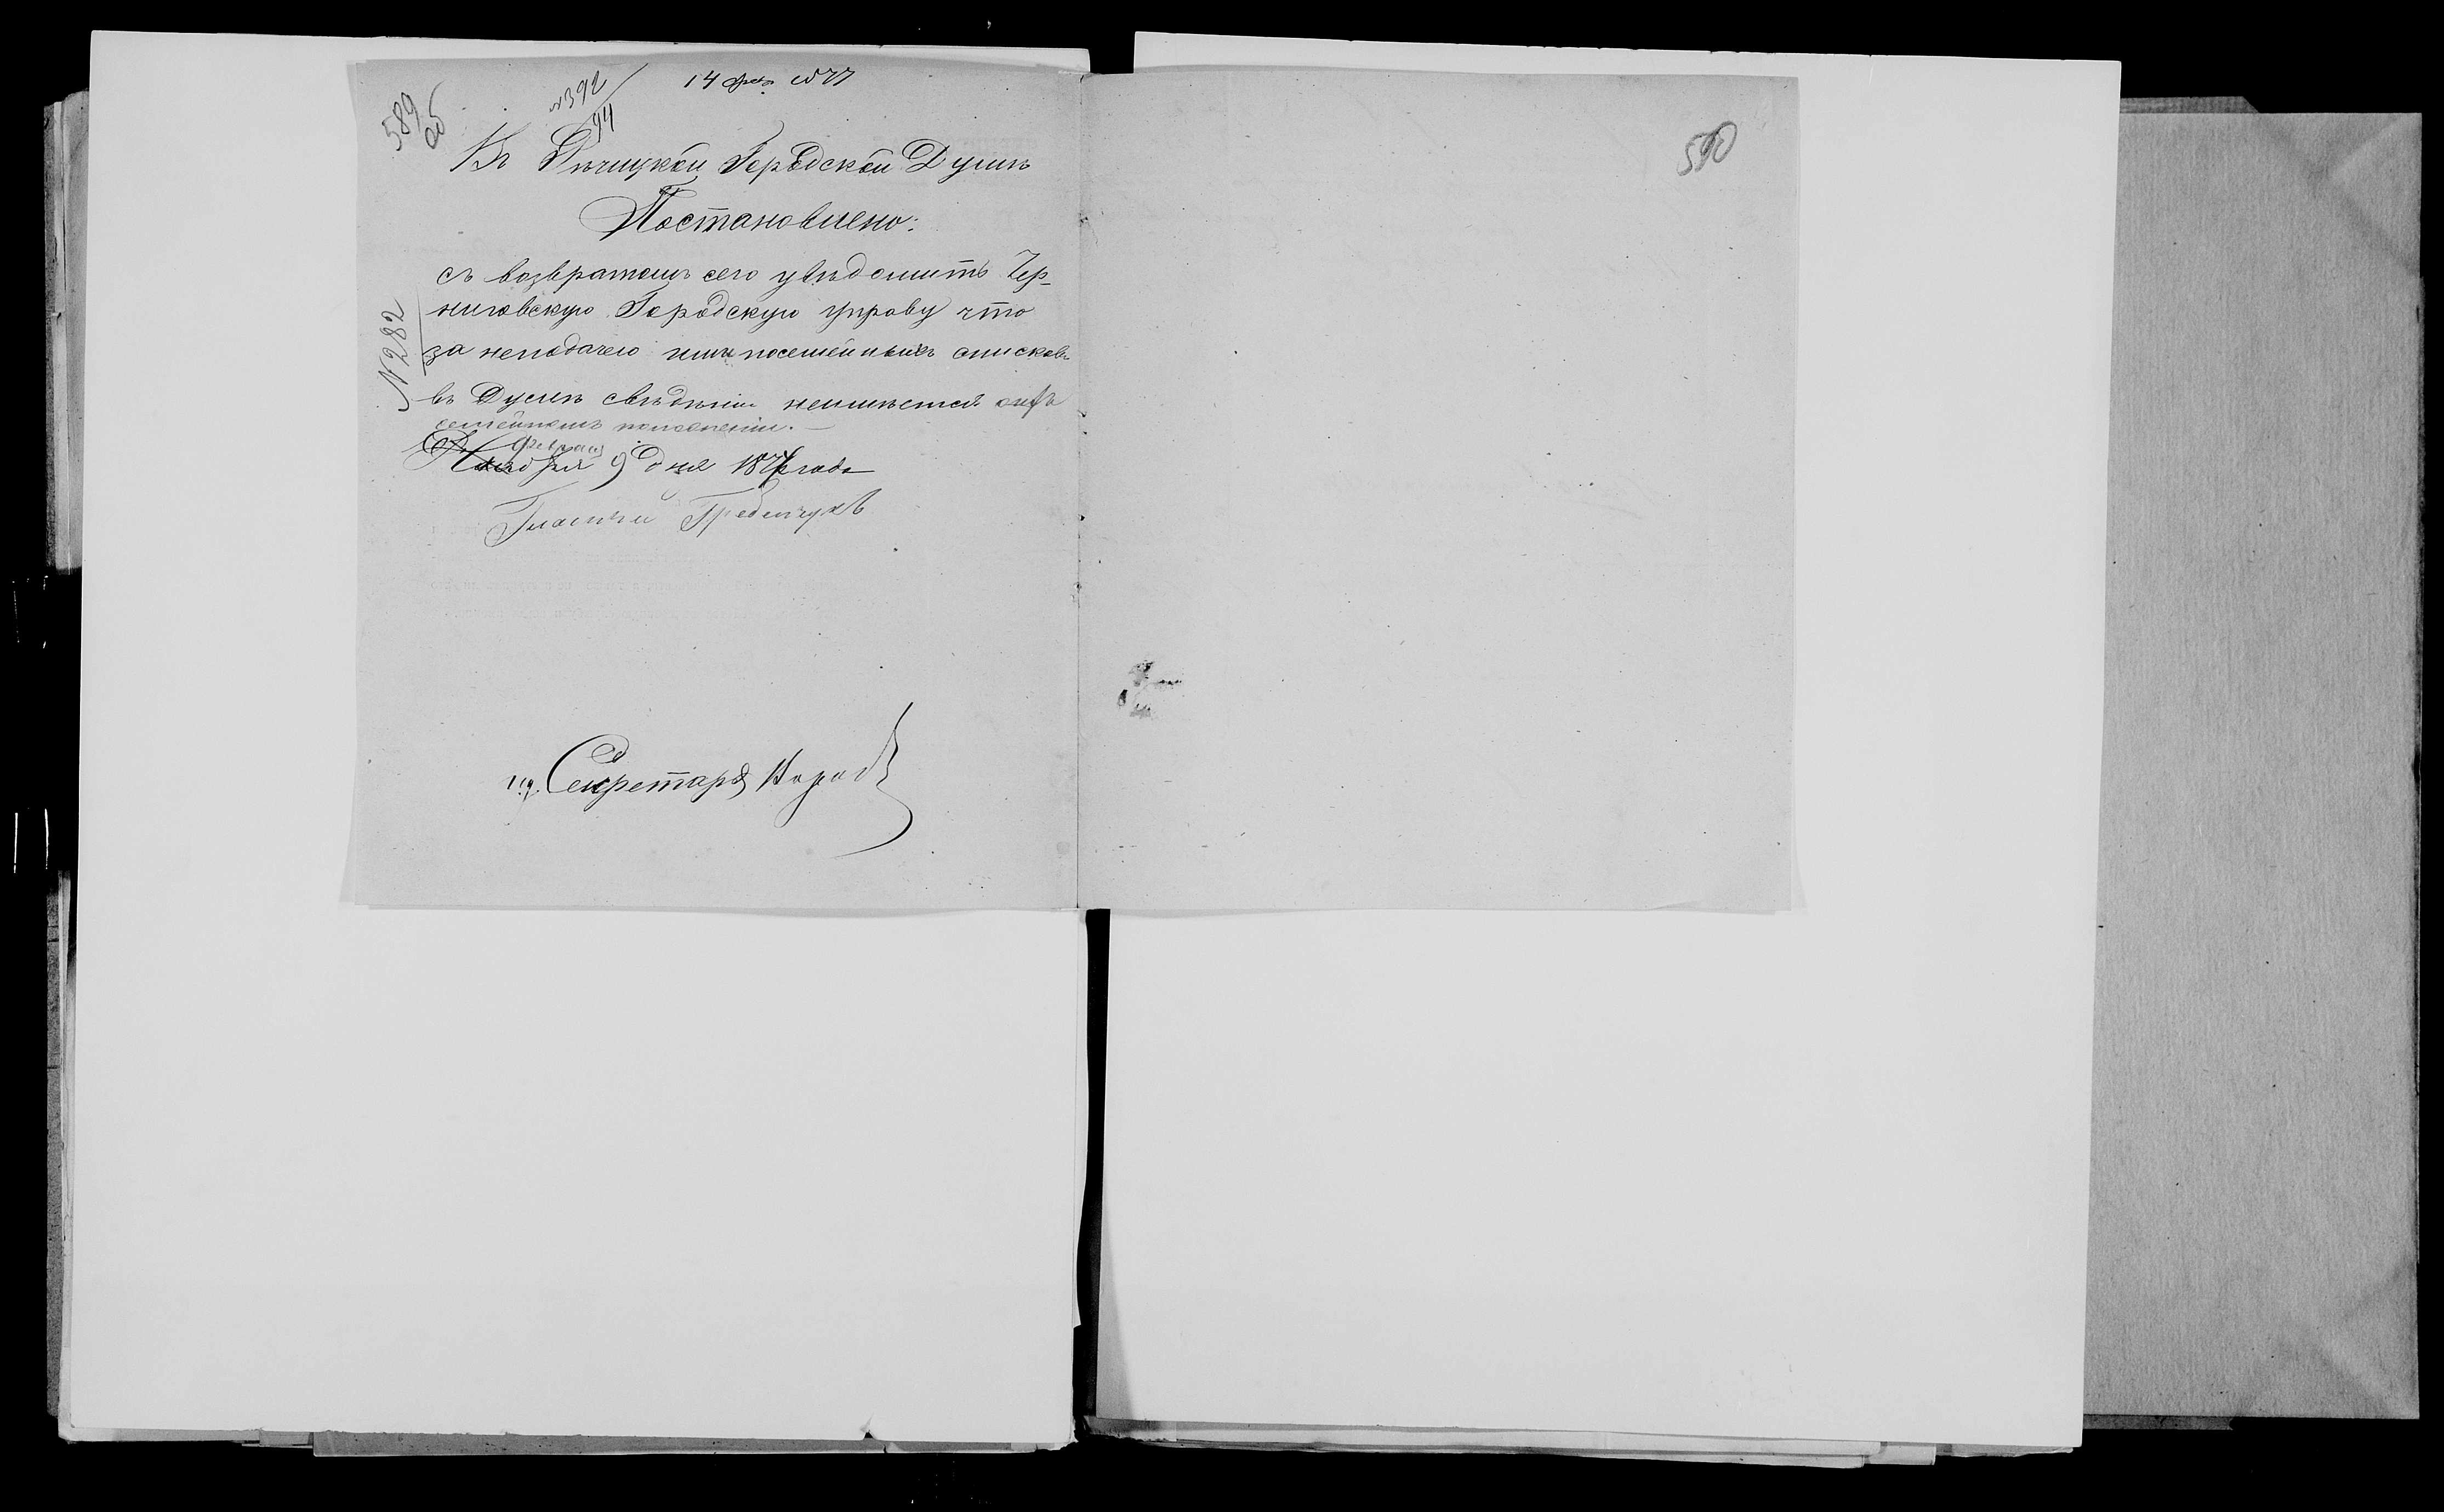 589
об
№392/94
14 фев. 1877
Въ Рѣчицкой Городской Думѣ
Постановлено:
съ возвратомъ сего увѣдомить Чер-
ниговскую Городскую управу что
за неподачею ими посемейныхъ списковъ
въ Думѣ свѣденій неимѣется объ ихъ
семейномъ положеніи.—
Февраля
9 дня 1877 года
Гласный Гребенчукъ
№ 282
Секретарь
590